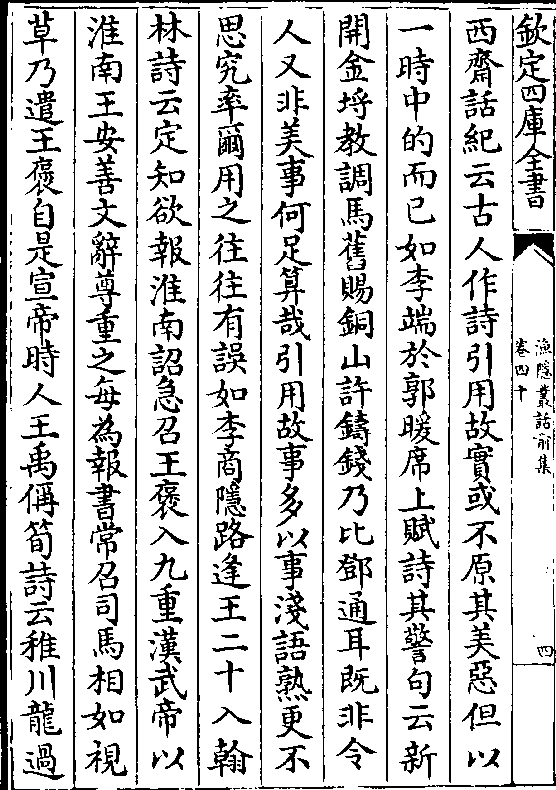 欽定四庫全書
漁隱叢話前集
卷四十
四
西齋話紀云古人作詩引用故實或不原其美惡但以
一時中的而已如李端於郭曖席上賦詩其警句云新
開金埒教調馬舊賜銅山許鑄錢乃比鄧通耳既非令
人又非美事何足算哉引用故事多以事淺語熟更不
思究率爾用之往往有誤如李商隱路逢王二十入翰
林詩云定知欲報淮南詔急召王褒入九重漢武帝以
淮南王安善文辭尊重之每為報書常召司馬相如視
草乃遣王褒自是宣帝時人王禹偁筍詩云稚川龍過